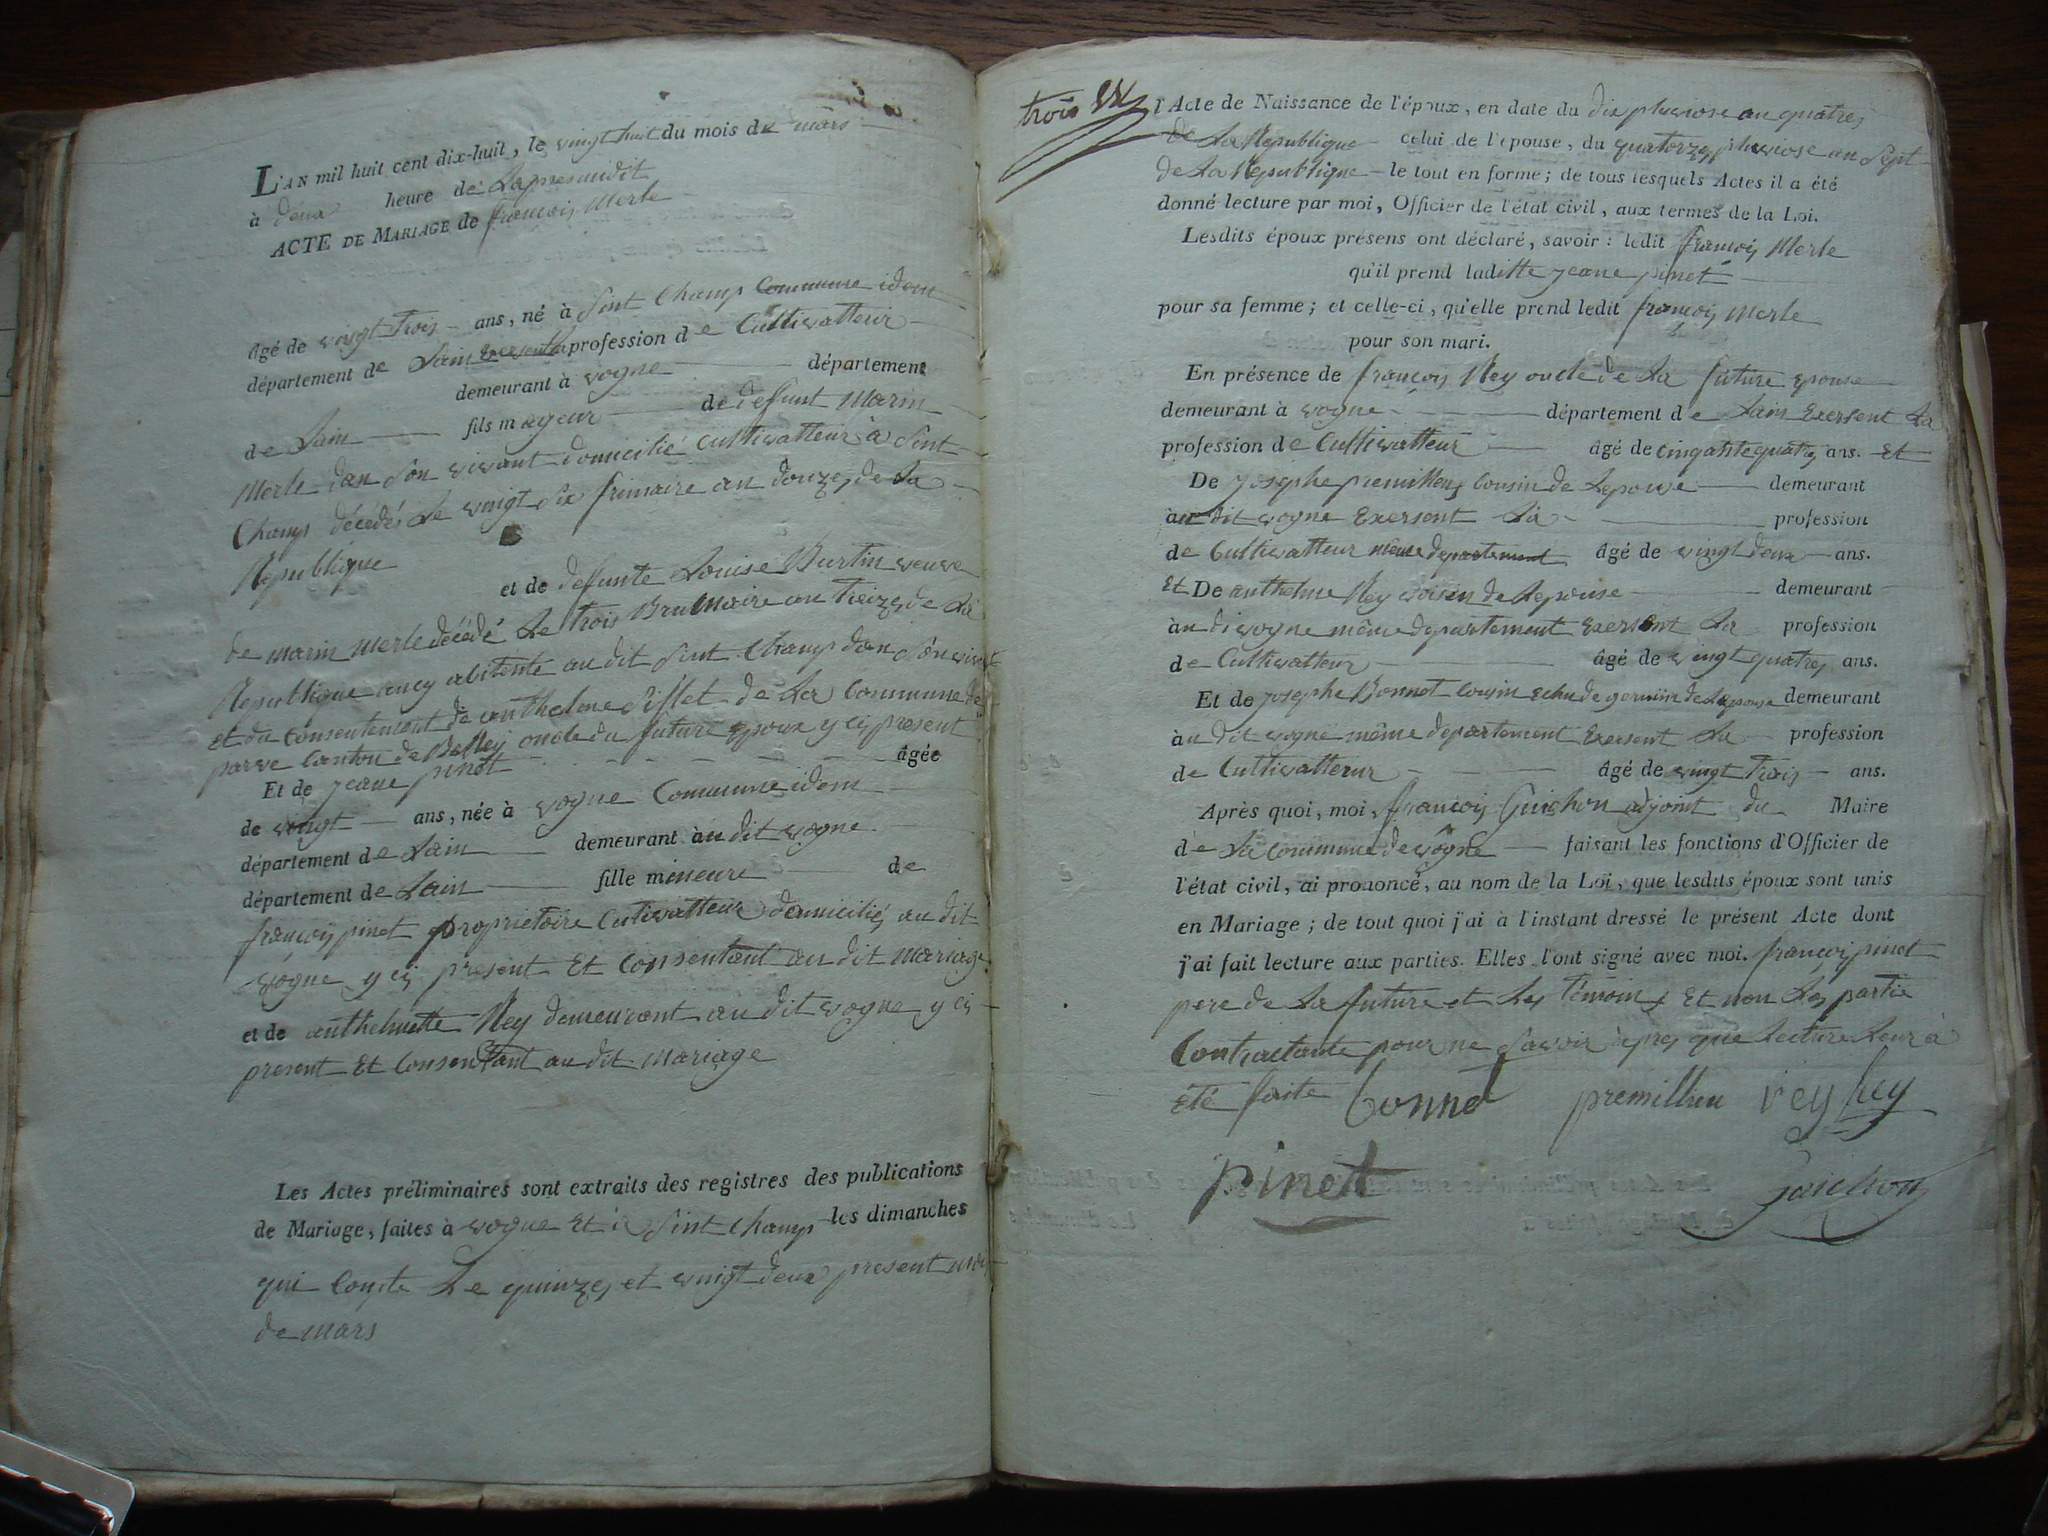 L'AN mil huit cent dix-huit, le vingt huit du mois de mars
à deux heure de Lapresmidit
ACTE DE MARIAGE de françois Merle
âgé de vingt Trois ans, né à Sint Champ Commune idem
département de Lain Exersent La profession de Cultivatteur
demeurant à vogne département
de Lain fils mageur de deffunt Marin
Merle dan Son vivant domicilié Cultivatteur à Sint
Champ décédés Le vingt Six frimaire an douzes de La
Republique
et de deffunte Louise Burtin veuve
de marin Merle décédé Le trois Brulmaire an Treizes de La
Republique aucy abitente au dit Sint Champ dan Son vivent
et du Consentement de anthelme Siflet de La Commune de
parve Canton de Belley oncle du future Epoux y ci present
Et de jeane pinet âgée
de vingt ans, née à vogne Commune idem
département de Lain demeurant au dit vogne
département de Lain fille mineure de
françois pinet proprietoire Cutivatteur domiciliés au dit
vogne y ci present Et Consentant au dit Mariage
et de anthelmette Rey demeurant au dit vogne y ci
present Et Consentant au dit Mariage
Les Actes préliminaires sont extraits des registres des publications
de Mariage, faites à vogne Et à Sint Champ les dimanches
qui Compte Le quinzes et vingt deux present moi
de mars
trois
l'Acte de Naissance de l'époux, en date du dix pluviose an quatres
de La Republique celui de l'épouse, du quatorzes pluviose an Sept
de La Republique le tout en forme; de tous lesquels Actes il a été
donné lecture par moi, Officier de l'état civil, aux termes de la Loi.
Lesdits époux présens ont déclaré, savoir: ledit françois Merle
qu'il prend laditte jeane pinet
pour sa femme; et celle-ci, qu'elle prend ledit françois Merle
pour son mari.
En présence de françois Rey oncle de La future epouse
demeurant à vogne département de Lain Exersent La
profession de Cultivatteur âgé de cinqante quatres ans. Et
De Josephe premillieu Cousin de Lepouse demeurant
au dit vogne Exersent La profession
de Cultivatteur même departement âgé de vingt deux ans.
Et De anthelme Rey voisin de Lepouse demeurant
àu di vogne même departement Exersent La profession
de Cultivatteur âgé de vingt quatres ans.
Et de josephe Bonnet Cousin de germin de Lepouse demeurant
àu dit vogne même departement Exersent La profession
de Cultivatteur âgé de vingt Trois ans.
Après quoi, moi, françois Guichon adjoint du Maire
de La commune de vôgne faisant les fonctions d'Officier de
l'état civil, ai prononcé, au nom de la Loi, que lesdits époux sont unis
en Mariage; de tout quoi j'ai à l'instant dressé le présent Acte dont
j'ai fait lecture aux parties. Elles l'ont signé avec moi. françois pinet
pere de La future et Les Témoins Et non Les partie
Contractante pour ne Savoir àpres que Lecture Leur à
Eté faite bonnet premillieu rey rey
pinet
Guichon